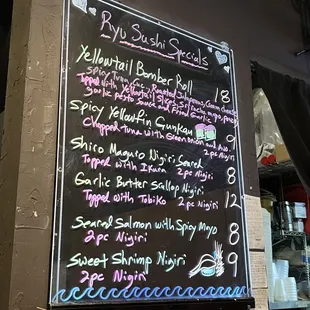 Ryu Sushi Specials
Yellowtail Bomber Roll 18
Spicy Tuna, Roasted Jalapeno, Cream Cheese
Topped with Yellowtail Slices, Sriracha,
garlic pesto sauce and Fried Garlic
Spicy Yellowfin Gunkan 9
Chopped tuna with Green onion and
2pc Nigiri
Shiro Maguro Nigiri Seared 8
Topped with Ikura 2pc Nigiri
Garlic Butter Scallop Nigiri 12
Topped with Tobiko 2pc Nigiri
Seared Salmon with Spicy Mayo 8
2pc Nigiri
Sweet Shrimp Nigiri 9
2pc Nigiri